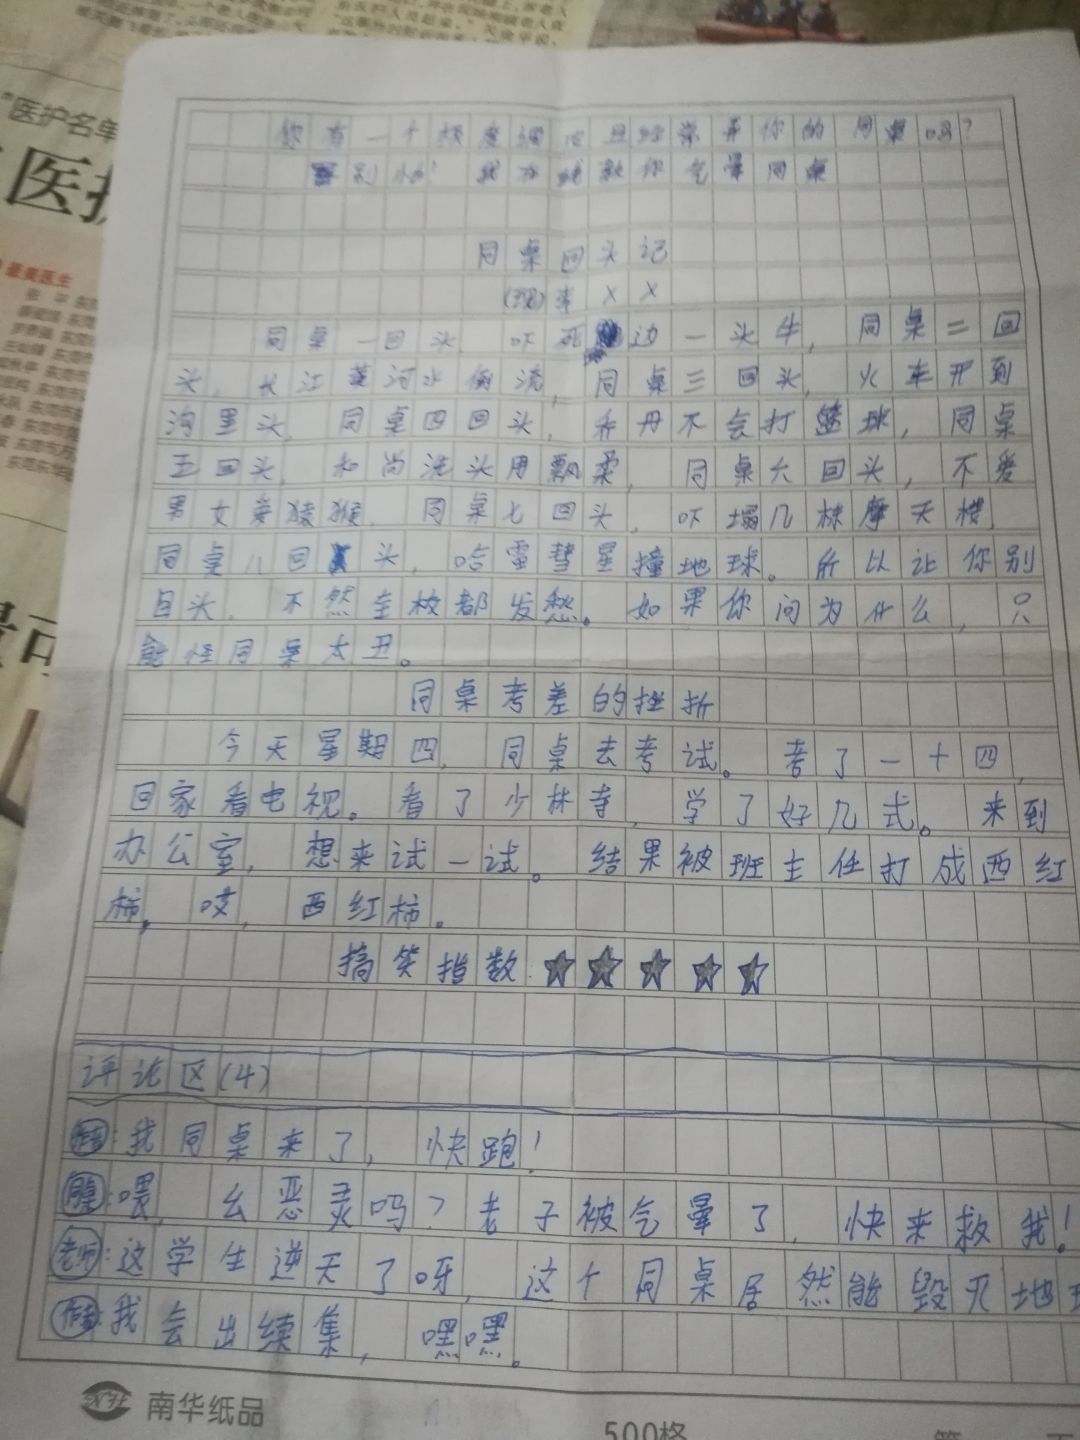 "医护名单
医护
最美医生
你有一个极度调皮且经常弄你的同桌吗?
别怕! 我在线教你气晕同桌
同桌回头记
(现)李XX
同桌一回头,吓死边一头牛,同桌二回
头,长江黄河水倒流,同桌三回头,火车开到
沟里头,同桌四回头,乔丹不会打篮球,同桌
五回头,和尚洗头用飘柔,同桌六回头,不爱
男女爱猿猴,同桌七回头,吓塌几栋摩天楼,
同桌八回头,哈雷彗星撞地球。所以让你别
回头,不然全校都发愁。如果你问为什么,只
能怪同桌太丑。
同桌考差的挫折
今天星期四,同桌去考试。考了一十四,
回家看电视。看了少林寺,学了好几式。来到
办公室,想来试一试。结果被班主任打成西红
柿,哎,西红柿。
搞笑指数:★★★★★
评论区(4)
作者:我同桌来了,快跑!
同桌:喂,幺恶灵吗?老子被气晕了,快来救我!
老师:这学生逆天了呀,这个同桌居然能毁灭地球
作者:我会出续集,嘿嘿。
南华纸品
500格